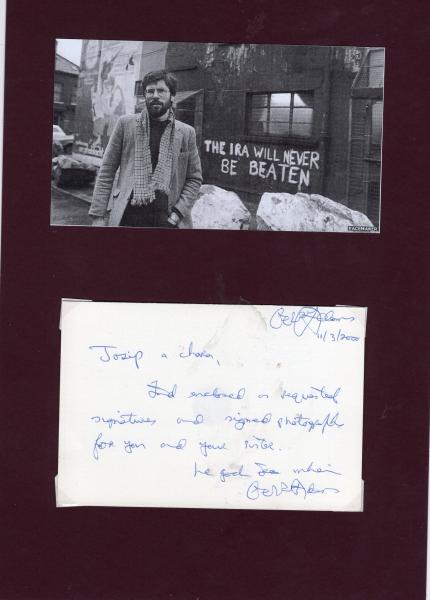 THE IRA WILL NEVER
BE BEATEN
PACEMAKER
Gerry Adams
11/3/2000
Josip a chara,
Find enclosed as requested
signatures and signed photographs
for you and your sister.
Le gach dea mhéin
Gerry Adams